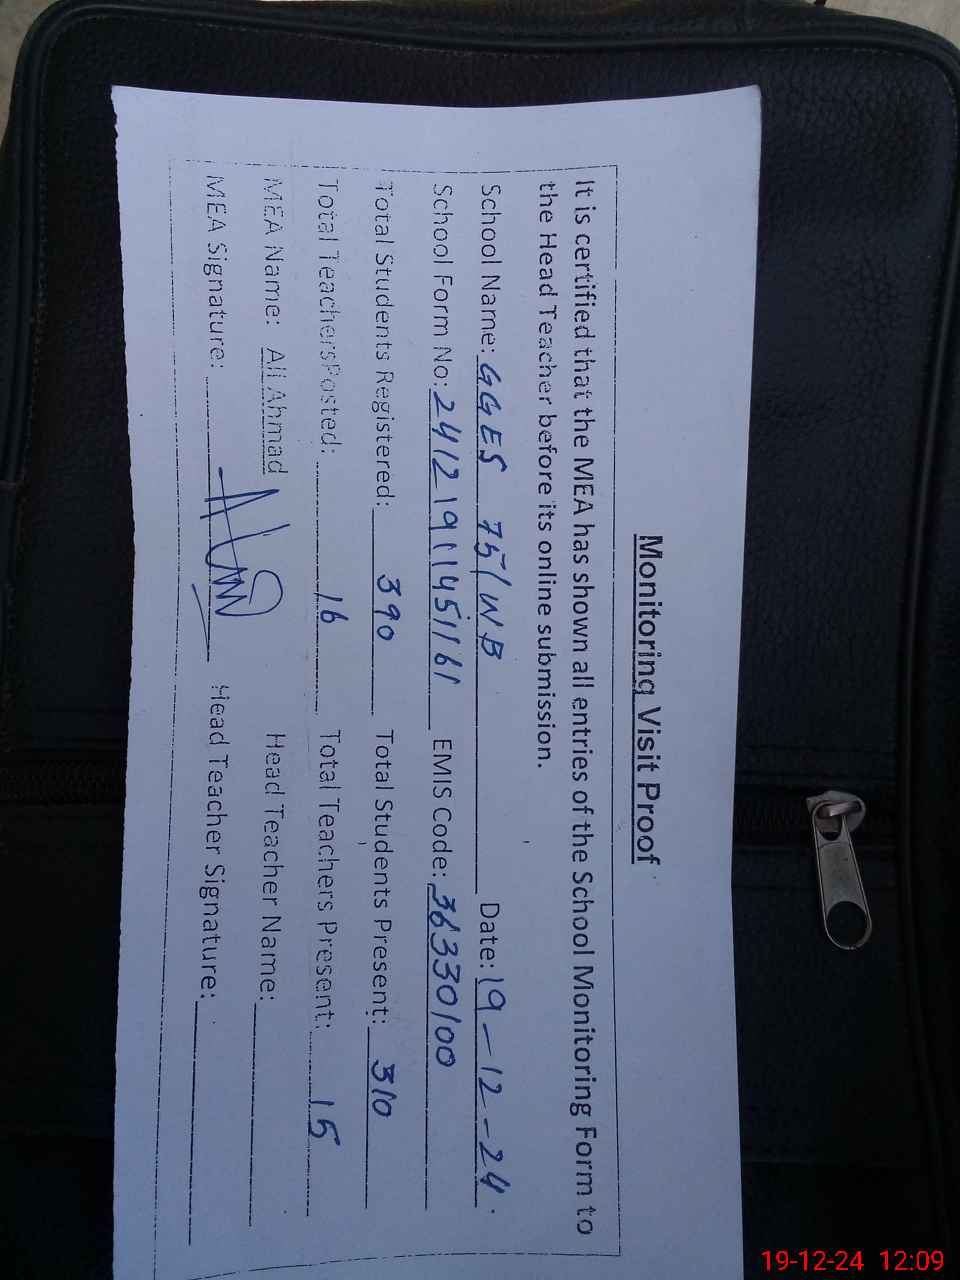 Monitoring Visit Proof
It is certified that the MEA has shown all entries of the School Monitoring Form to
the Head Teacher before its online submission.
School Name: GGES 75/WB Date: 19-12-24.
School Form No: 24121911451161 EMIS Code: 36330100
Total Students Registered: 390 Total Students Present: 310
Total Teachers Posted: 16 Total Teachers Present: 15
MEA Name: Ali Ahmad Head Teacher Name:
MEA Signature: Head Teacher Signature:
19-12-24 12:09